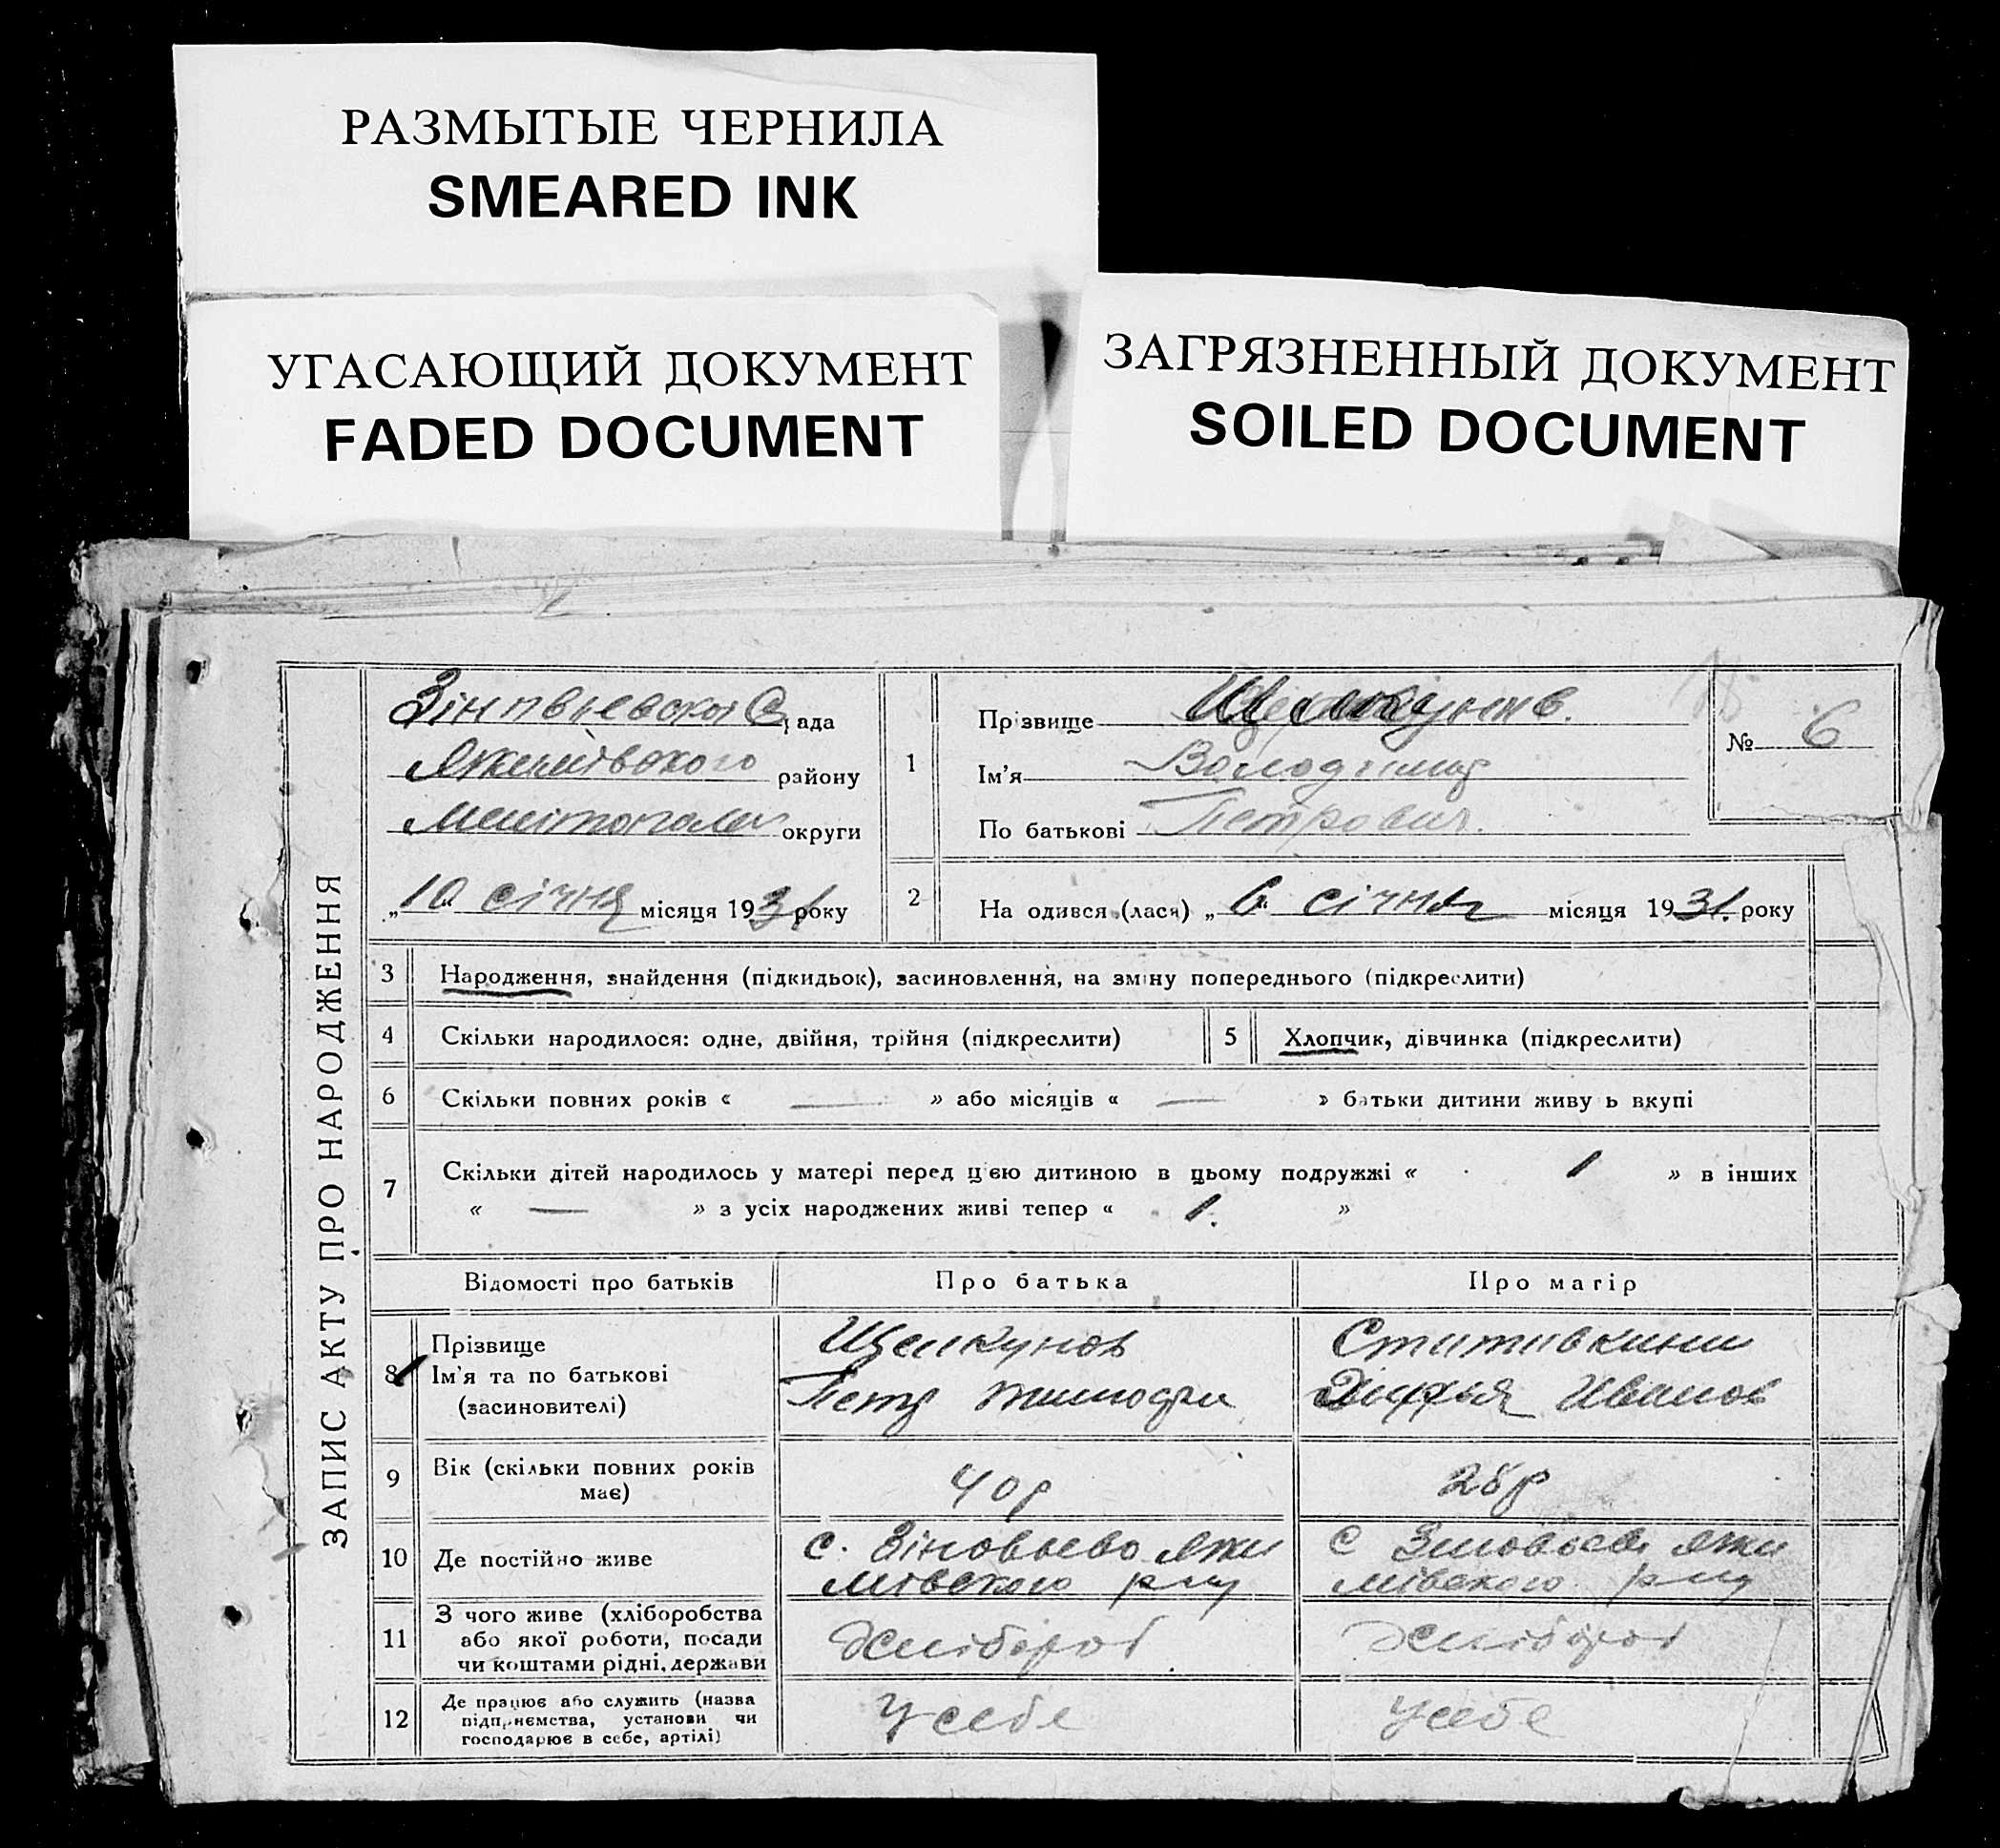 РАЗМЫТЫЕ ЧЕРНИЛА
SMEARED INK
УГАСАЮЩИЙ ДОКУМЕНТ
FADED DOCUMENT
ЗАГРЯЗНЕННЫЙ ДОКУМЕНТ
SOILED DOCUMENT
ЗАПИС АКТУ ПРО НАРОДЖЕННЯ
рада
Якимівского району
округи
„10 січня місяця 1931 року
1
Прізвище
Ім'я Володимир
По батькові Петрович
№ 6
2
На одився (лася) „ 6 січня місяця 1931. року
3 Народження, знайдення (підкидьок), засиновлення, на зміну попереднього (підкреслити)
4 Скільки народилося: одне, двійня, трійня (підкреслити)
5 Хлопчик, дівчинка (підкреслити)
6 Скільки повних років « — » або місяців « — » батьки дитини живу ь вкупі
7 Скільки дітей народилось у матері перед цєю дитиною в цьому подружжі « 1 » в інших
« — » з усіх народжених живі тепер « 1. »
Відомості про батьків
Про батька
Про матір
8 Прізвище
Ім'я та по батькові
(засиновителі)
Щелкунов
Петр Тимофеи
Иванов
9 Вік (скільки повних років
має)
40 р
28 р
10 Де постійно живе
с. Зіновьево Яки
мівского р-ну
с Зиновьев Яки
мівского р-ну
11 З чого живе (хліборобства
або якої роботи, посади
чи коштами рідні, держави
Хлібороб
Хлібороб
12 Де працює або служить (назва
підприємства, установи чи
господарює в себе, артілі)
У себе
У себе